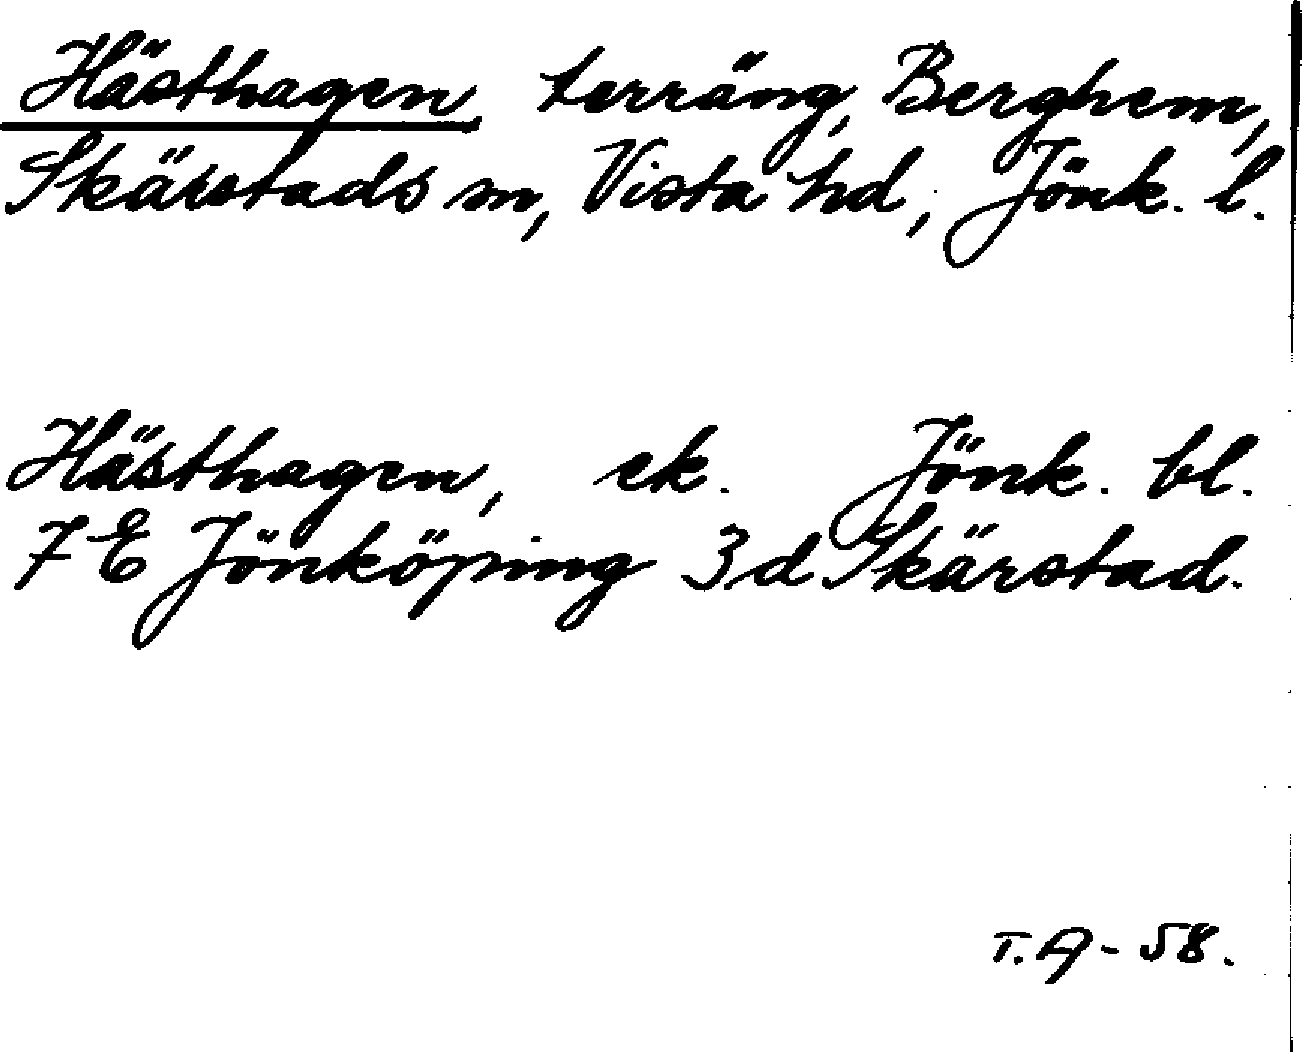 Hästhagen, terräng, Berghem,
Skärstads sn, Vista hd, Jönk. l.
Hästhagen, ek. Jönk. bl.
7 E Jönköping 3d Skärstad.
T.A-58.